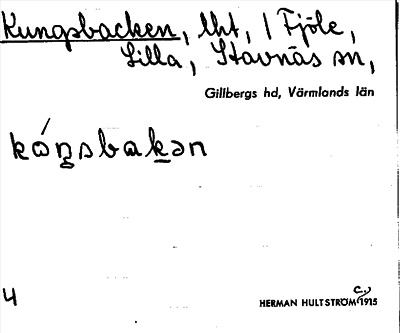 Kungsbacken, lht, i Fjöle,
Lilla, Stavnäs sn,
Gillbergs hd, Värmlands län
kóŋsbakən
4
HERMAN HULTSTRÖM c., 1915